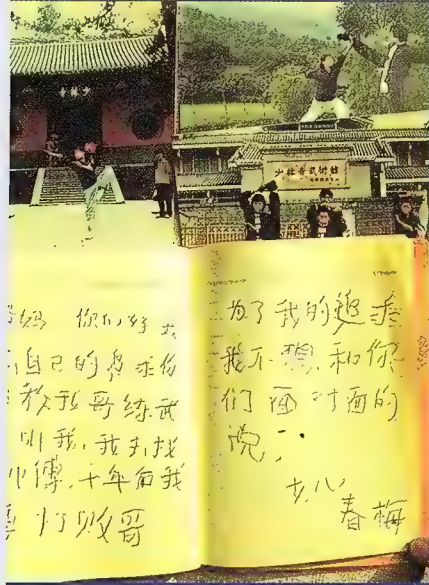 少林寺
少林寺武術館
妈 你们好
自己的追求你
教我哥练武
我,我去找
师傅,十年后我
打败哥
为了我的追求
我不想和你
们面对面的
说.
女儿
春梅